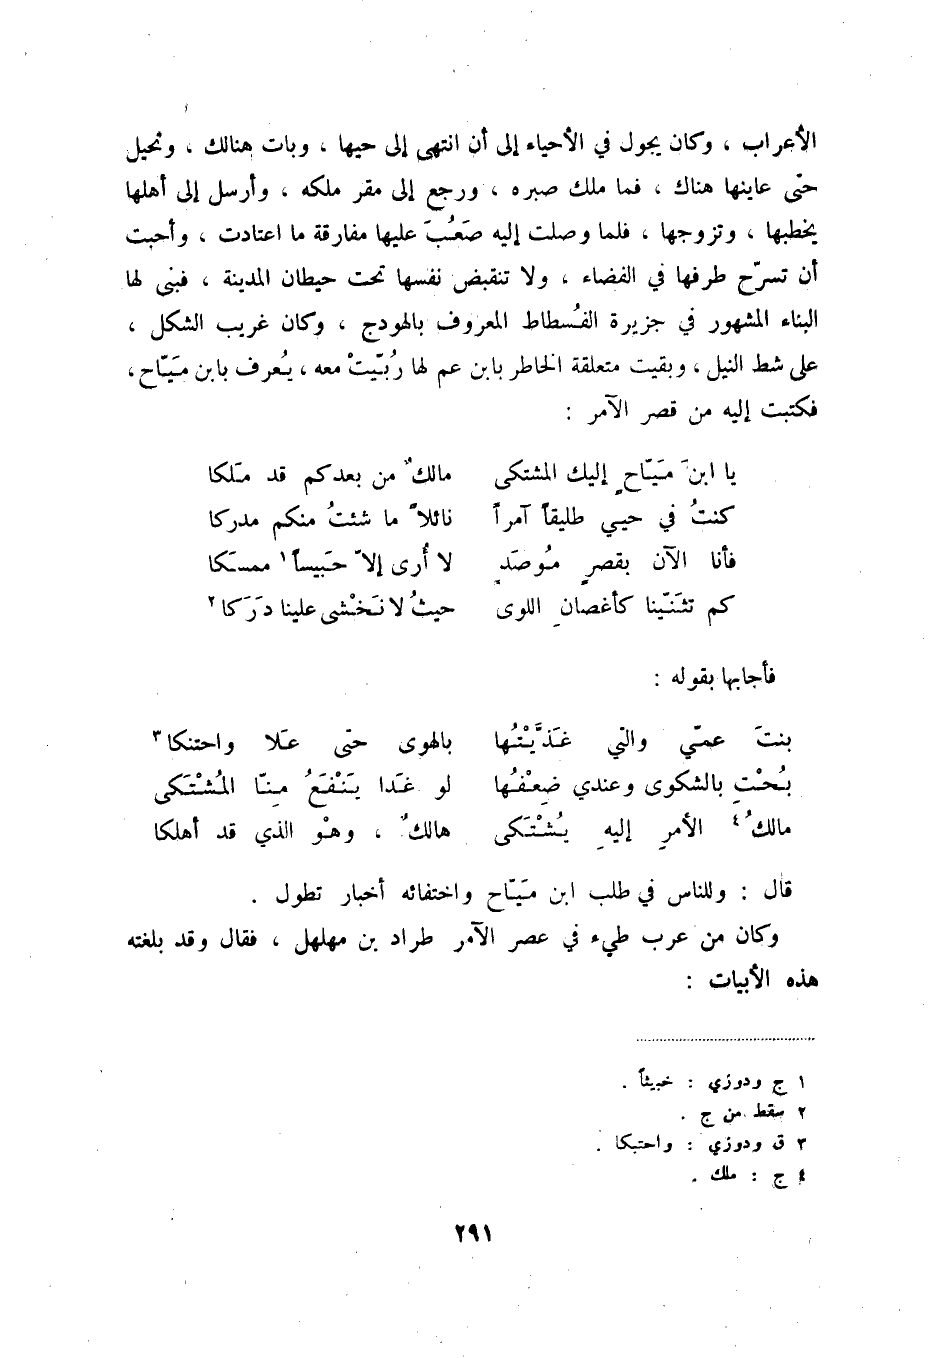 الأعراب ، وكان يجول في الأحياء إلى أن انتهى إلى حيها ، وبات هنالك ، وتحيل
حتّى عاينها هناك ، فما ملك صبره ، ورجع إلى مقر ملكه ، وأرسل إلى أهلها
يخطبها ، وتزوجها ، فلما وصلت إليه صَعُبَ عليها مفارقة ما اعتادت ، وأحبت
أن تسرّح طرفها في الفضاء ، ولا تنقبض نفسها تحت حيطان المدينة ، فبنى لها
البناء المشهور في جزيرة الفُسطاط المعروف بالهودج ، وكان غريب الشكل ،
على شط النيل ، وبقيت متعلقة الخاطر بابن عم لها رُبّيتْ معه ، يُعرف بابن مَيّاح ،
فكتبت إليه من قصر الآمر :
يا ابنَ مَيّاحٍ إليك المشتكى مالكٌ من بعدكم قد مَلكا
كنتُ في حيي طليقاً آمراً نائلاً ما شئتُ منكم مدركا
فأنا الآن بقصرٍ مُوصَدٍ لا أُرى إلاّ حَبيساً١ ممسَكا
كم تثَنّينا كأغصانِ اللوى حيثُ لا نَخْشى علينا دَرَكا٢
فأجابها بقوله :
بنتَ عمّي والتي غَذَّيْتُها بالهوى حتّى عَلا واحتنكا٣
بُحْتِ بالشكوى وعندي ضِعْفُها لو غَدا يَنْفَعُ مِنّا المُشْتَكى
مالكُ٤ الأمرِ إليهِ يُشْتَكى هالكٌ ، وهْو الذي قد أهلكا
قال : وللناس في طلب ابن مَيّاح واختفائه أخبار تطول .
وكان من عرب طيء في عصر الآمر طراد بن مهلهل ، فقال وقد بلغته
هذه الأبيات :
١ ج ودوزي : خبيثاً .
٢ سقط من ج .
٣ ق ودوزي : واحتبكا .
٤ ج : ملك .
٢٩١